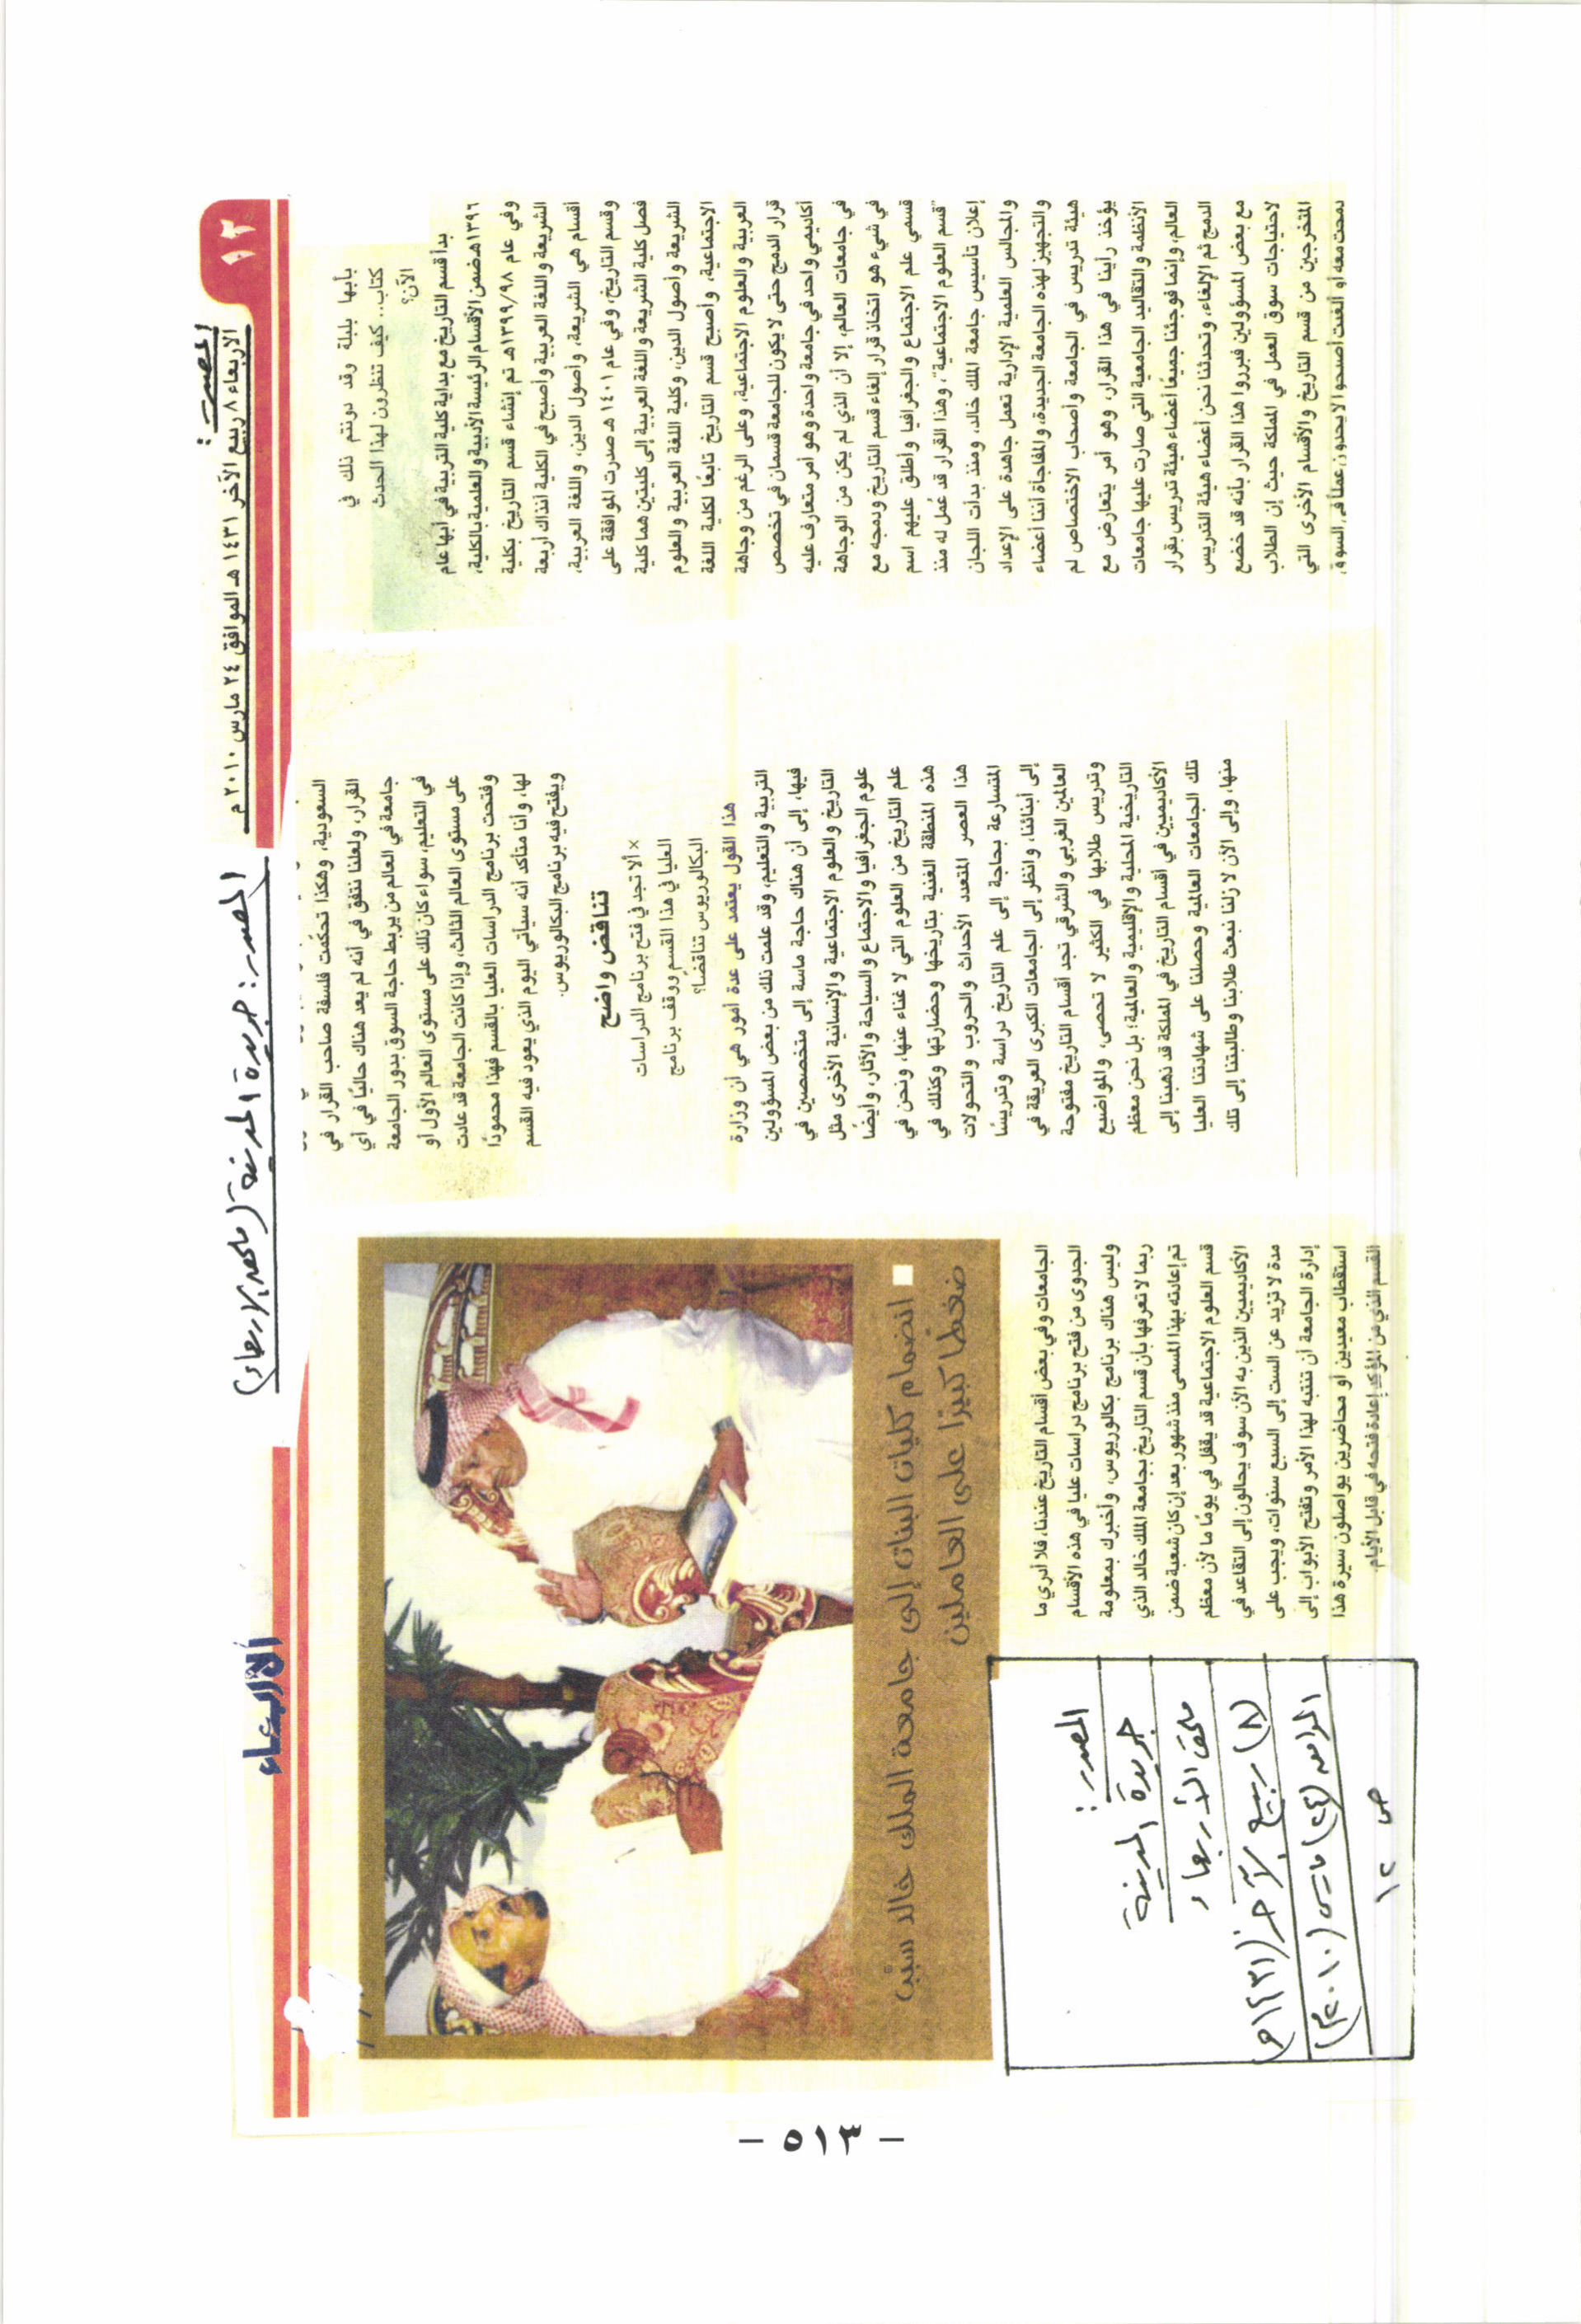 المصدر:
الأربعاء ٨ ربيع الآخر ١٤٣١ هـ الموافق ٢٤ مارس ٢٠١٠ م
١٢
المصدر: جريدة المدينة (ملحق الأربعاء)
الأربعاء
بأبها بلبلة وقد دونتم ذلك في
كتاب... كيف تنظرون لهذا الحدث
الآن؟
بدأ قسم التاريخ مع بداية كلية التربية في أبها عام
١٣٩٦هـ ضمن الأقسام الرئيسة الأدبية والعلمية بالكلية،
وفي عام ١٣٩٩/٩٨هـ تم إنشاء قسم التاريخ بكلية
الشريعة واللغة العربية وأصبح في الكلية آنذاك أربعة
أقسام هي الشريعة، وأصول الدين، واللغة العربية،
وقسم التاريخ، وفي عام ١٤٠١هـ صدرت الموافقة على
فصل كلية الشريعة واللغة العربية إلى كليتين هما كلية
الشريعة وأصول الدين، وكلية اللغة العربية والعلوم
الاجتماعية، وأصبح قسم التاريخ تابعًا لكلية اللغة
العربية والعلوم الاجتماعية، وعلى الرغم من وجاهة
قرار الدمج حتى لا يكون للجامعة قسمان في تخصص
أكاديمي واحد في جامعة واحدة وهو أمر متعارف عليه
في جامعات العالم، إلا أن الذي لم يكن من الوجاهة
في شيء هو اتخاذ قرار إلغاء قسم التاريخ ودمجه مع
قسمي علم الاجتماع والجغرافيا وأطلق عليهم اسم
"قسم العلوم الاجتماعية"، وهذا القرار قد عُمل له منذ
إعلان تأسيس جامعة الملك خالد، ومنذ بدأت اللجان
والمجالس العلمية الإدارية تعمل جاهدة على الإعداد
والتجهيز لهذه الجامعة الجديدة، والمفاجأة أننا أعضاء
هيئة تدريس في الجامعة وأصحاب الاختصاص لم
يؤخذ رأينا في هذا القرار، وهو أمر يتعارض مع
الأنظمة والتقاليد الجامعية التي صارت عليها جامعات
العالم، وإنما فوجئنا جميعًا أعضاء هيئة تدريس بقرار
الدمج ثم الإلغاء، وتحدثنا نحن أعضاء هيئة التدريس
مع بعض المسؤولين فبرروا هذا القرار بأنه قد خضع
لاحتياجات سوق العمل في المملكة حيث إن الطلاب
المتخرجين من قسم التاريخ والأقسام الأخرى التي
دمجت معه أو ألغيت أصبحوا لا يجدون عملًا في السوق.
السعودية، وهكذا تحكمت فلسفة صاحب القرار في
القرار، ولعلنا نتفق في أنه لم يعد هناك حاليًا في أي
جامعة في العالم من يربط حاجة السوق بدور الجامعة
في التعليم، سواء كان ذلك على مستوى العالم الأول أو
على مستوى العالم الثالث، وإذا كانت الجامعة قد عادت
وفتحت برنامج الدراسات العليا بالقسم فهذا محمودًا
لها، وأنا متأكد أنه سيأتي اليوم الذي يعود فيه القسم
ويفتح فيه برنامج البكالوريوس.
تناقض واضح
× ألا تجد في فتح برنامج الدراسات
العليا في هذا القسم ووقف برنامج
البكالوريوس تناقضًا؟
هذا القول يعتمد على عدة أمور هي أن وزارة
التربية والتعليم، وقد علمت ذلك من بعض المسؤولين
فيها، إلى أن هناك حاجة ماسة إلى متخصصين في
التاريخ والعلوم الاجتماعية والإنسانية الأخرى مثل
علوم الجغرافيا والاجتماع والسياحة والآثار، وأيضًا
علم التاريخ من العلوم التي لا غناء عنها، ونحن في
هذه المنطقة الغنية بتاريخها وحضارتها وكذلك في
هذا العصر المتعدد الأحداث والحروب والتحولات
المتسارعة بحاجة إلى علم التاريخ دراسة وتدريسًا
إلى أبنائنا، وانظر إلى الجامعات الكبرى العريقة في
العالمين الغربي والشرقي تجد أقسام التاريخ مفتوحة
وتدريس طلابها في الكثير لا تحصى، والمواضيع
التاريخية المحلية والإقليمية والعالمية؛ بل نحن معظم
الأكاديميين في أقسام التاريخ في المملكة قد ذهبنا إلى
تلك الجامعات العالمية وحصلنا على شهادتنا العليا
منها، وإلى الآن لا زلنا نبعث طلابنا وطالبتنا إلى تلك
انضمام كليات البنات إلى جامعة الملك خالد سبّب
ضغطًا كبيرًا على العاملين
الجامعات وفي بعض أقسام التاريخ عندنا، فلا أدري ما
الجدوى من فتح برنامج دراسات عليا في هذه الأقسام
وليس هناك برنامج بكالوريوس، وأخبرك بمعلومة
ربما لا تعرفها بأن قسم التاريخ بجامعة الملك خالد الذي
تم إعادته بهذا المسمى منذ شهور بعد إن كان شعبة ضمن
قسم العلوم الاجتماعية قد يقفل في يومًا ما لأن معظم
الأكاديميين الذين به الآن سوف يحالون إلى التقاعد في
مدة لا تزيد عن الست إلى السبع سنوات، ويجب على
إدارة الجامعة أن تنتبه لهذا الأمر وتفتح الأبواب إلى
استقطاب معيدين أو محاضرين يواصلون سيرة هذا
القسم الذي من المؤكد إعادة فتحه في قابل الأيام.
المصدر:
جريدة المدينة
ملحق الأربعاء
(٨) ربيع الآخر (١٤٣١هـ)
الموافق (٢٤) مارس (٢٠١٠م)
ص ١٢
- ٥١٣ -